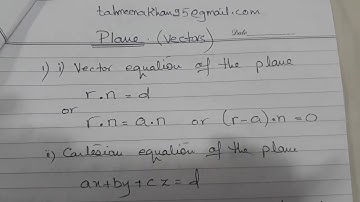 tahmeenakhan95@gmail.com
Plane (Vectors)
Date
1) i) Vector equation of the plane
r.n = d
or
r.n = a.n or (r-a).n = 0
ii) Cartesian equation of the plane
ax+by+cz = d